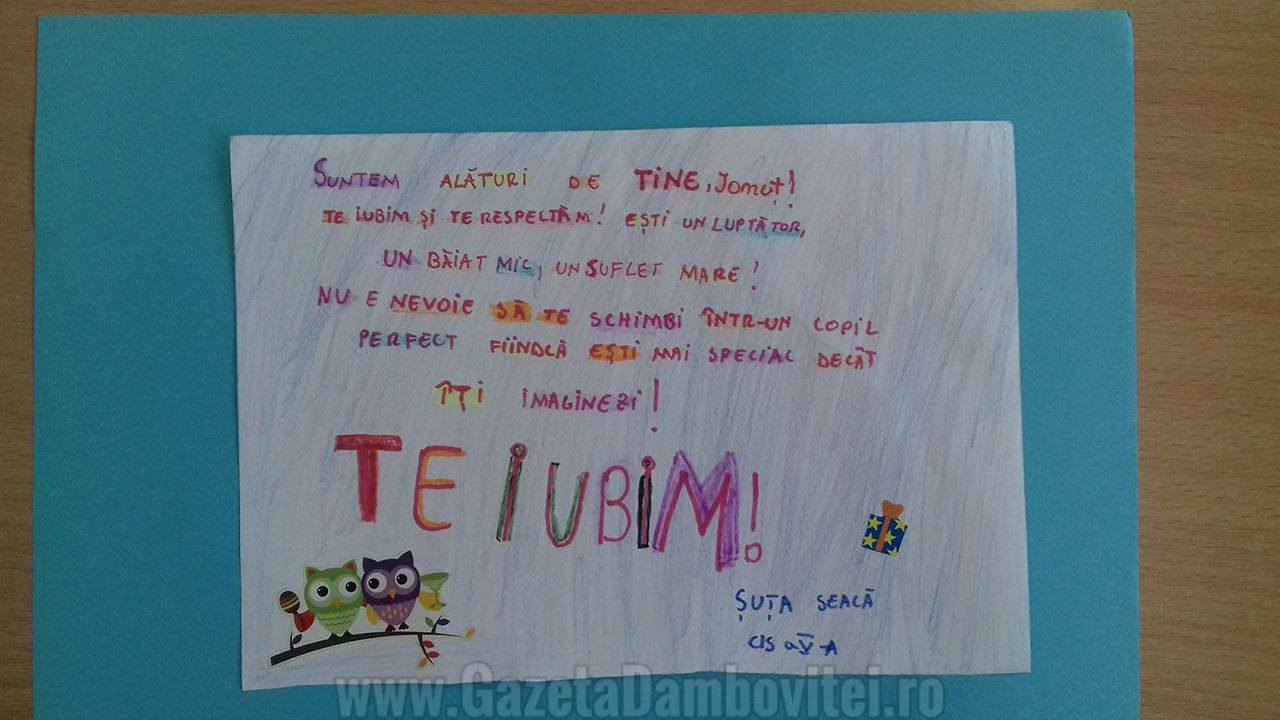 SUNTEM ALĂTURI DE TINE, Ionuț!
TE IUBIM ȘI TE RESPECTĂM! EȘTI UN LUPTĂTOR,
UN BĂIAT MIC, UN SUFLET MARE!
NU E NEVOIE SĂ TE SCHIMBI ÎNTR-UN COPIL
PERFECT FIINDCĂ EȘTI MAI SPECIAL DECÂT
ÎȚI IMAGINEZI!
TE IUBIM!
ȘUȚA SEACĂ
cls a V-A
www.GazetaDambovitei.ro